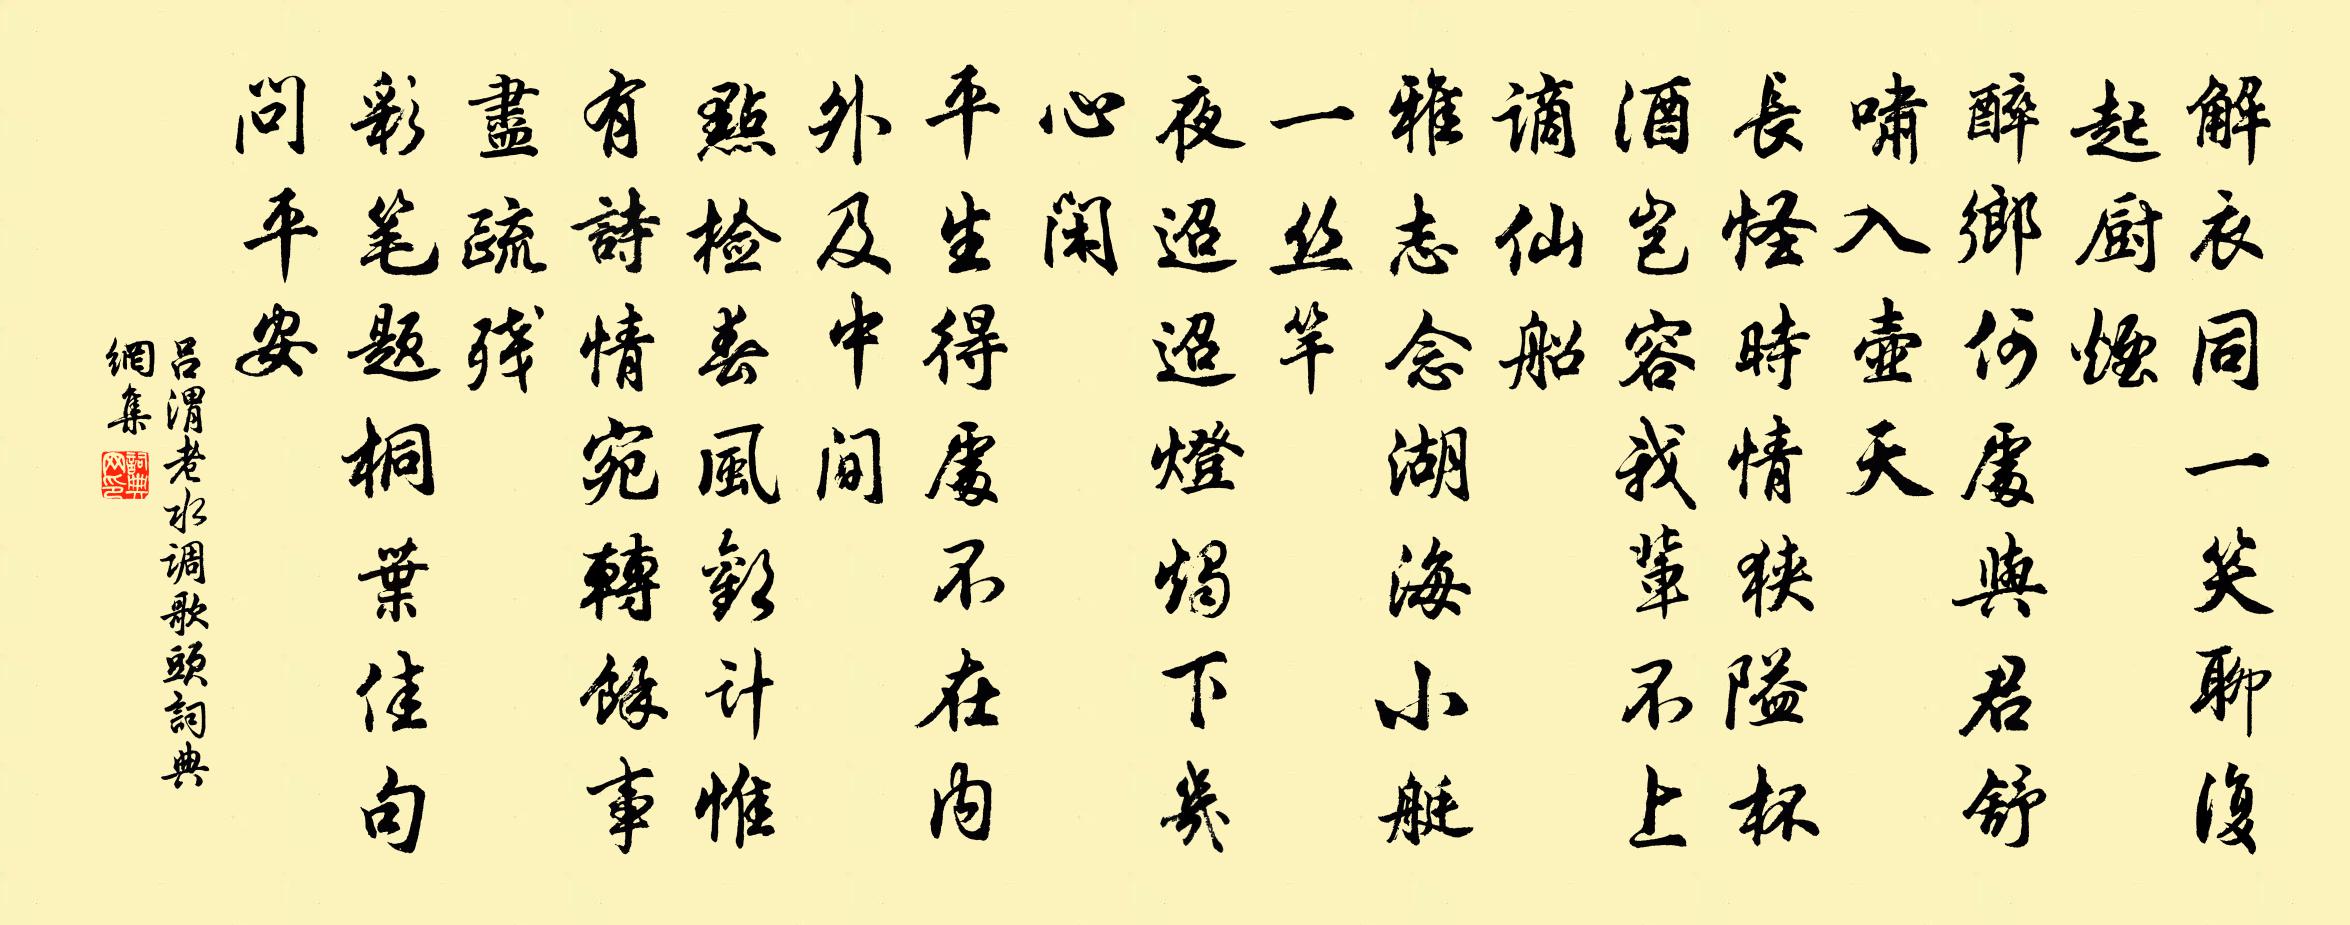 解衣同一笑聊復
起厨煙
醉鄉何處與君舒
嘯入壺天
長怪時情狹隘杯
酒豈容我輩不上
謫仙船
雅志念湖海小艇
一丝竿
夜迢迢燈燭下幾
心閑
平生得處不在内
外及中间
點检春風歡计惟
有詩情宛轉餘事
盡疏残
彩笔题桐葉佳句
问平安
吕渭老水调歌頭詞典
網集
詞典网印